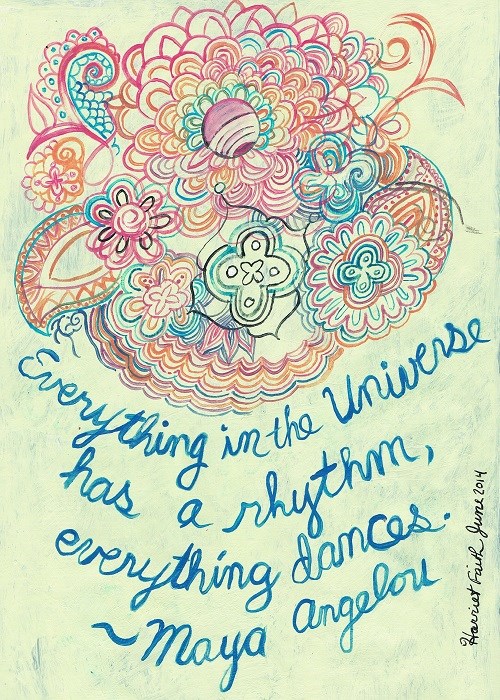 Everything in the Universe
has a rhythm,
everything dances.
~Maya Angelou
Harriet Faith June 2014